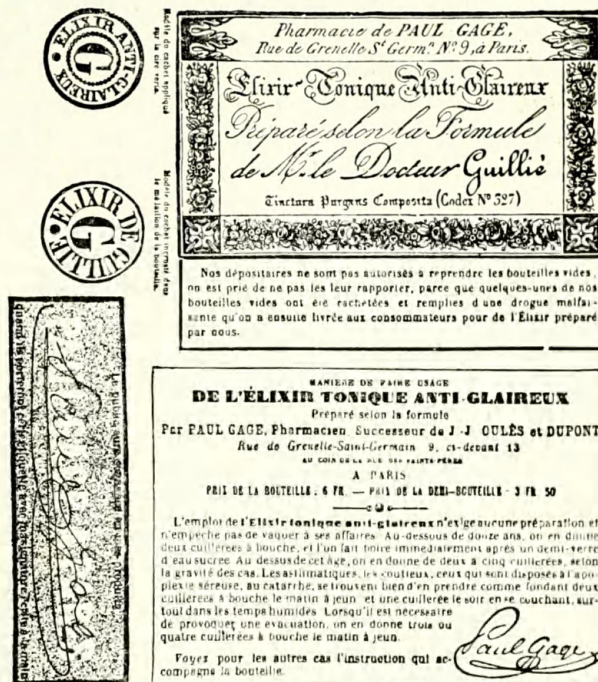 Pharmacie de PAUL GAGE,
Rue de Grenelle St Germn. No 9, à Paris.
Elixir Tonique Anti Glaireux
Préparé selon la Formule
de Mr. le Docteur Guillié
Tinctura Purgans Composita (Codex No 327)
ELIXIR ANTI-GLAIREUX
G
Modèle du cachet appliqué
sur la cire verte.
ELIXIR DE GUILLIE
G
Modèle du cachet incrusté dans
le médaillon de la bouteille.
Nos dépositaires ne sont pas autorisés à reprendre les bouteilles vides,
on est prié de ne pas les leur rapporter, parce que quelques-unes de nos
bouteilles vides ont été rachetées et remplies d'une drogue malfai-
sante qu'on a ensuite livrée aux consommateurs pour de l'Élixir préparé
par nous.
MANIÈRE DE FAIRE USAGE
DE L'ÉLIXIR TONIQUE ANTI-GLAIREUX
Préparé selon la formule
Par PAUL GAGE, Pharmacien Successeur de J.-J. OULÈS et DUPONT
Rue de Grenelle-Saint-Germain 9, ci-devant 13
AU COIN DE LA RUE DES SAINTS-PÈRES
A PARIS
PRIX DE LA BOUTEILLE : 6 FR. — PRIX DE LA DEMI-BOUTEILLE : 3 FR. 50
L'emploi de l'Elixir tonique anti-glaireux n'exige aucune préparation et
n'empêche pas de vaquer à ses affaires. Au-dessous de douze ans, on en donne
deux cuillerées à bouche, et l'on fait boire immédiatement après un demi-verre
d'eau sucrée. Au dessus de cet âge, on en donne de deux à cinq cuillerées, selon
la gravité des cas. Les asthmatiques, les goutteux, ceux qui sont disposés à l'apo-
plexie séreuse, au catarrhe, se trouvent bien d'en prendre comme fondant deux
cuillerées à bouche le matin à jeun et une cuillerée le soir en se couchant, sur-
tout dans les temps humides. Lorsqu'il est nécessaire
de provoquer une évacuation, on en donne trois ou
quatre cuillerées à bouche le matin à jeun.
Voyez pour les autres cas l'instruction qui ac-
compagne la bouteille.
Paul Gage